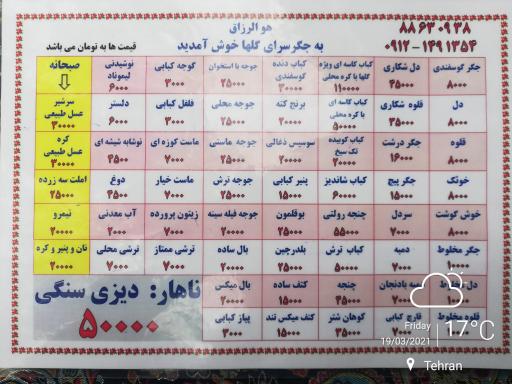 هو الرزاق
۸۸۶۳۰۹۳۸
به جگرسرای گلها خوش آمدید
۰۹۱۲-۱۴۹۱۳۵۴
قیمت ها به تومان می باشد
جگر گوسفندی
۸۰۰۰
دل شکاری
۴۵۰۰۰
کباب کاسه ای ویژه گلها با کره محلی
۱۱۰۰۰۰
کباب دنده گوسفندی
جوجه با استخوان
۲۵۰۰۰
گوجه کبابی
۳۰۰۰
نوشیدنی لیموناد
۶۰۰۰
صبحانه
دل
۸۰۰۰
قلوه شکاری
۳۵۰۰۰
کباب کاسه ای با کره محلی
۵۰۰۰۰
برنج کته
۲۰۰۰۰
جوجه محلی
۲۵۰۰۰
فلفل کبابی
۳۰۰۰
دلستر
۶۰۰۰
سرشیر عسل طبیعی
۳۰۰۰۰
قلوه
۸۰۰۰
جگر درشت
۱۶۰۰۰
کباب کوبیده تک سیخ
۲۰۰۰۰
سوسیس ذغالی
جوجه ماستی
۲۵۰۰۰
ماست کوزه ای
۷۰۰۰
نوشابه شیشه ای
۴۵۰۰
کره عسل طبیعی
۳۰۰۰۰
خوئک
۸۰۰۰
جگر پیچ
۱۵۰۰۰
کباب شاندیز
۶۰۰۰۰
پنیر کبابی
۱۵۰۰۰
جوجه ترش
۲۵۰۰۰
ماست خیار
۷۰۰۰
دوغ
۴۵۰۰
املت سه زرده
۲۵۰۰۰
خوش گوشت
۸۰۰۰
سردل
۷۰۰۰
چنجه رولتی
۵۵۰۰۰
بوقلمون
۲۵۰۰۰
جوجه فیله سینه
۲۰۰۰۰
زیتون پرورده
۷۰۰۰
آب معدنی
۲۰۰۰
نیمرو
۲۰۰۰۰
جگر مخلوط
۱۰۰۰۰
دمبه
۷۰۰۰
کباب ترش
۵۰۰۰۰
بلدرچین
۲۵۰۰۰
بال ساده
۲۰۰۰۰
ترشی ممتاز
۷۰۰۰
ترشی محلی
۷۰۰۰
نان و پنیر و کره
۲۰۰۰۰
دل مخلوط
بادنجان
۷۰۰۰
چنجه
۴۵۰۰۰
کتف ساده
۱۵۰۰۰
بال میکس
۲۰۰۰۰
ناهار: دیزی سنگی
۵۰۰۰۰
قلوه مخلوط
قارچ کبابی
۷۰۰۰
گوهان شتر
۳۵۰۰۰
کتف میکس تند
۱۵۰۰۰
پیاز کبابی
۳۰۰۰
Friday
19/03/2021
17°C
Tehran